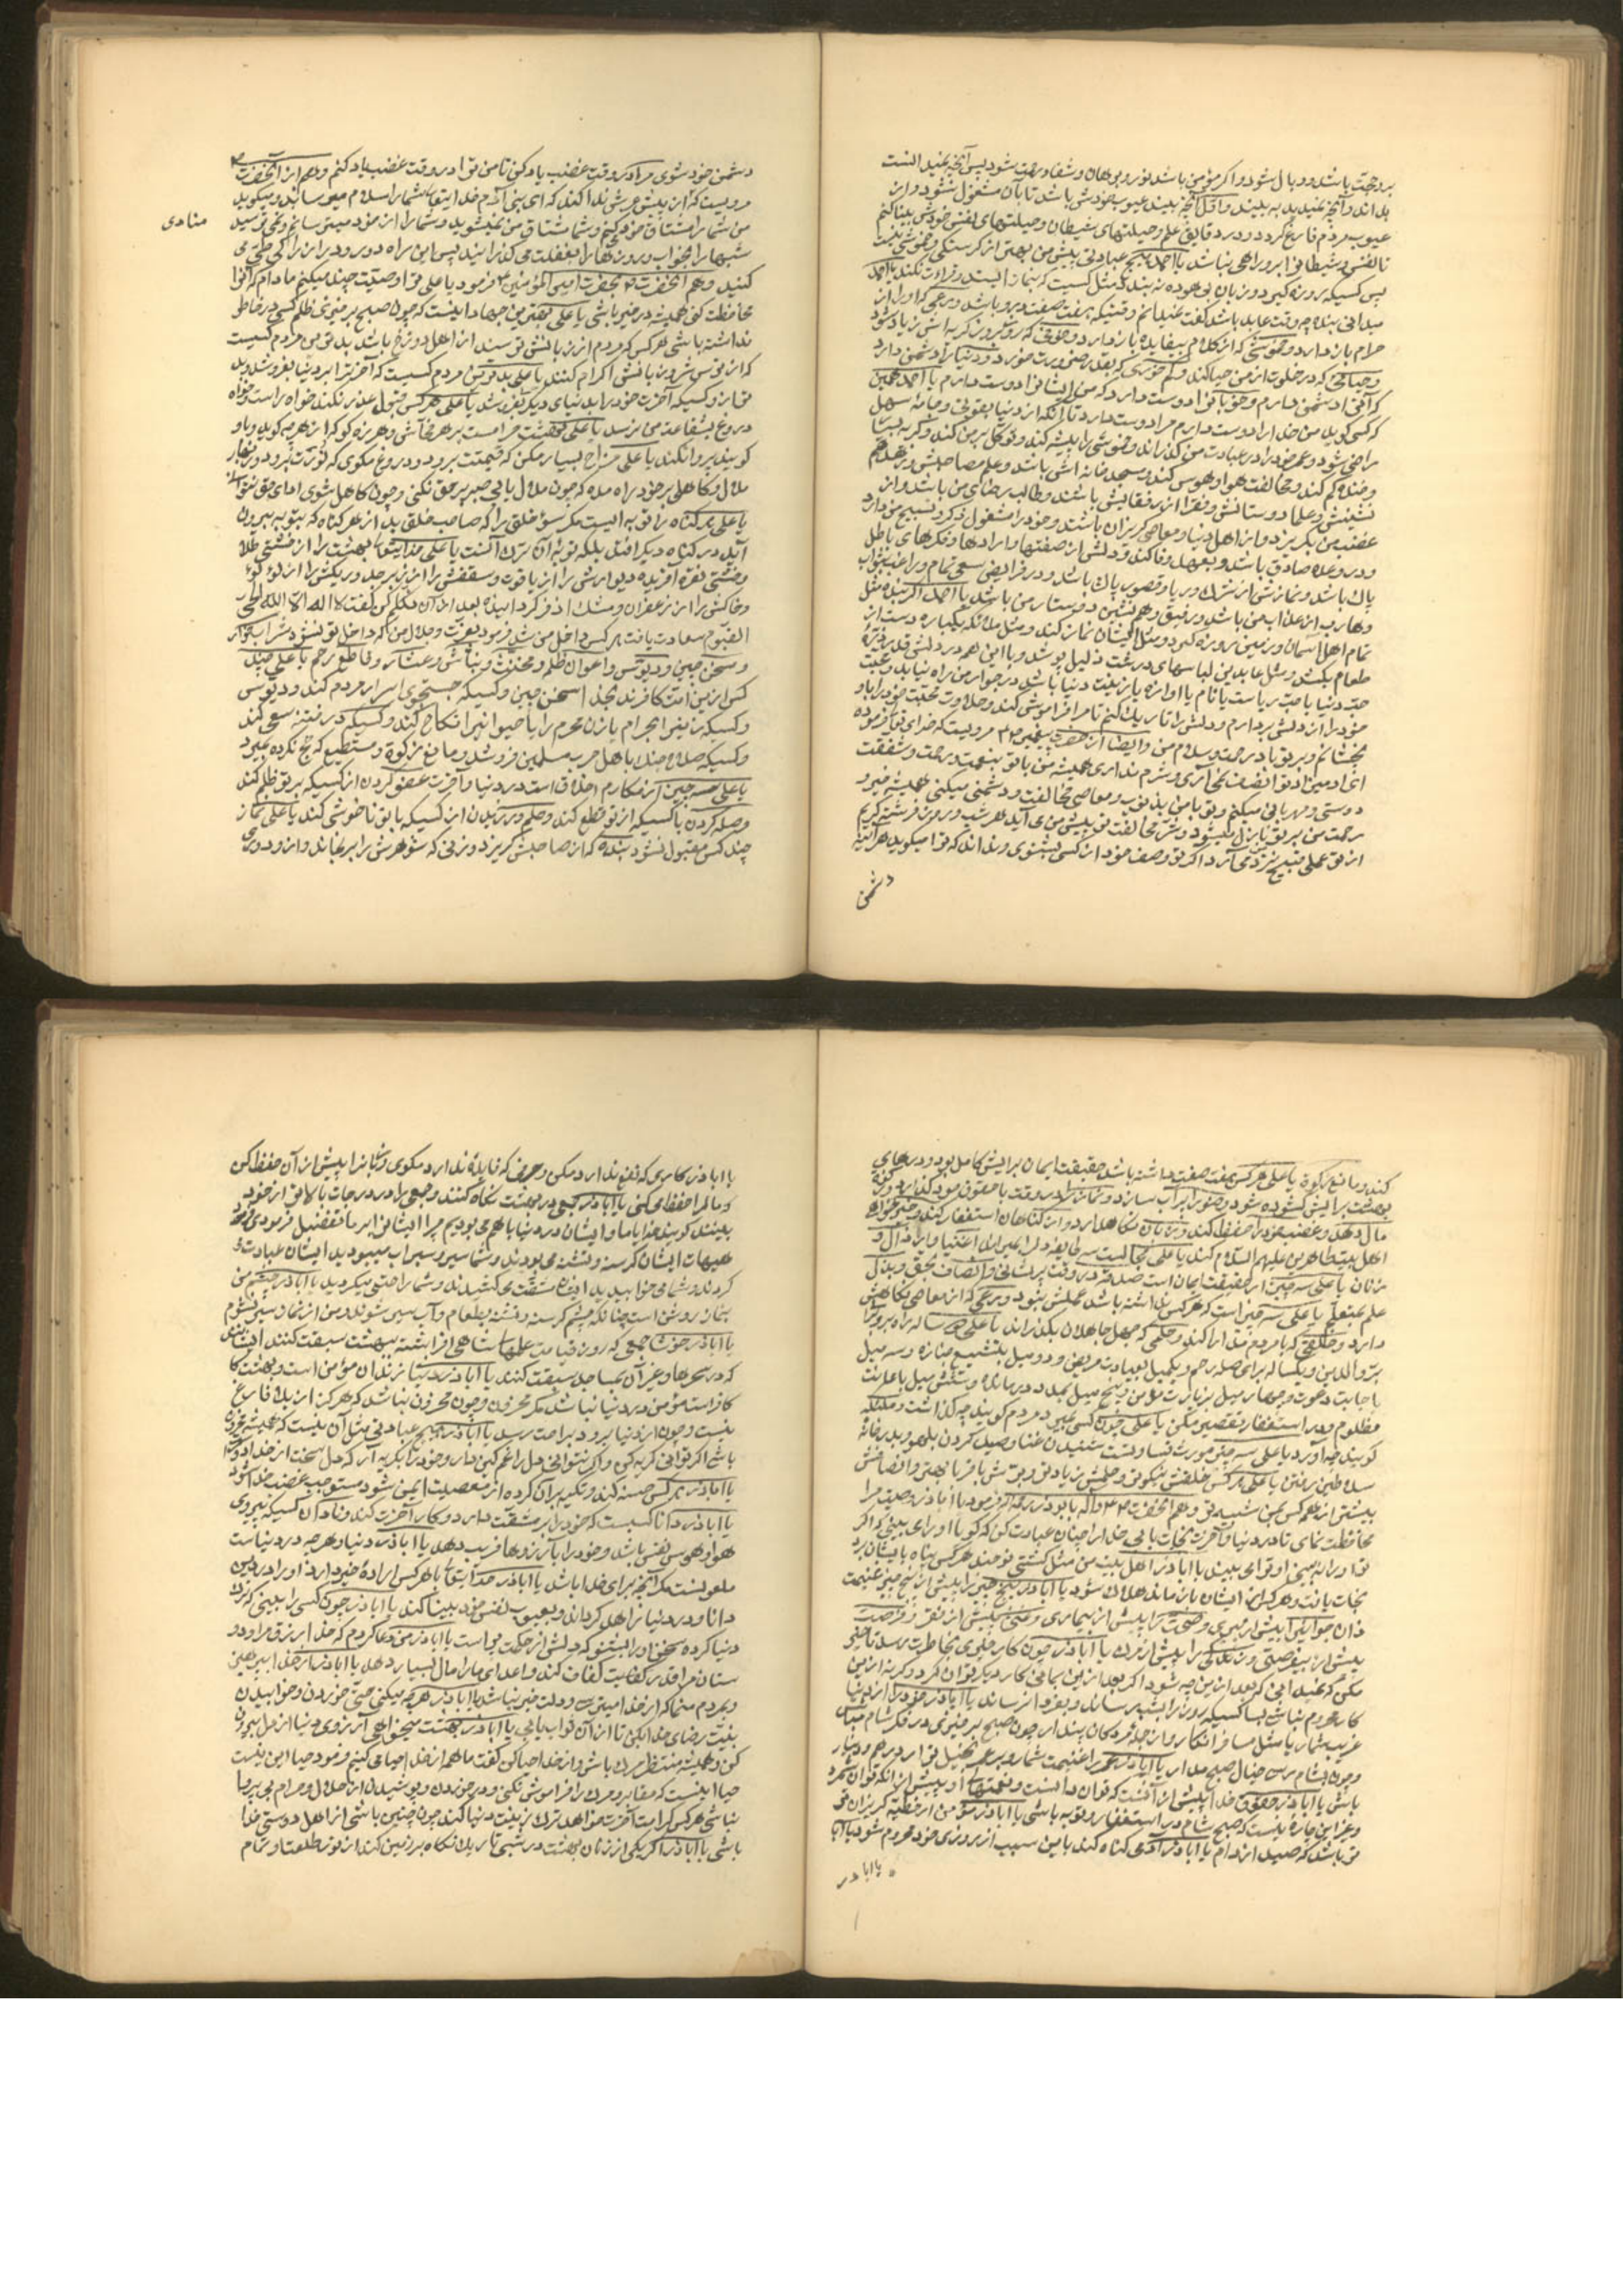 بر وحجت باشد و وبال شود و اکر مؤمن باشد نور و برهان و شفا و رحمت شود پس آنچه نمیدانست
بداند و آنچه نمیدید به بیند و اول آنچه بیند عیوب خودش باشد تا بآن مشغول شود و از
عیوب مردم فارغ کردد و در دقایق علم و حیلتهای شیطان و حیلتهای نفس خودش بینا کنم
تا نفس و شیطان را بر او راهی نباشد یا احمد هیچ عبادتی پیش من بهتر از کرسنکی و خموشی نیست
پس کسیکه روزه کیرد و زبان از بیهوده نه بندد مثل کسیست که بنماز ایستد و قراءت نکند یا احمد
میدانی بنده چه وقت عابد باشد گفت نمیدانم وقتیکه هفت صفت درو باشد ورعی که او را از
حرام باز دارد و خموشی که از کلام بیفایده باز دارد و خوفی که روز بروز کریه اش زیاد شود
و حیائی که در خلوت از من حیا کند و کم خوری که بقدر ضرورت خورد و دنیا را دشمن دارد
که آنرا دشمن دارم و خوبان را دوست دارد که من ایشانرا دوست دارم یا احمد همین
که کسی کوید من خدا را دوست دارم مرا دوست ندارد تا آنکه از دنیا بقوتی و جامه سهل
راضی شود و عمر خود را در عبادت من کذراند و خموشی را پیشه کند و توکل بر من کند و کریه بسیار
و خنده کم کند و مخالفت هوا و هوس کند و مسجد خانه اش باشد و علم مصاحبش و زهد هم
نشینش و علما دوستانش و فقرا رفقایش باشند و طالب رضای من باشد و از
غضب من بکریزد و از اهل دنیا و معاصی کریزان باشد و خود را مشغول ذکر و تسبیح من دارد
و در وعده صادق باشد و بعهد وفا کند و دلش از صفتها و ارادها و فکرهای باطل
پاک باشد و نمازش از شرک و ریا و قصور پاک باشد و در فرایض سعی تمام و راغب بثواب
و هارب از عذاب من باشد و رفیق و هم نشین دوستان من باشد یا احمد اکر بنده مثل
تمام اهل آسمان و زمین روزه کیرد و مثل ایشان نماز کند و مثل ملائکه یکباره دست از
طعام بکشد و مثل عابدین لباسهای درشت ذلیل پوشد و با این همه در دلش قدر ذره
حب دنیا یا حب ریاست یا نام یا آوازه یا زینت دنیا باشد در جوار من راه نیابد و محبت
خود را از دلش بردارم و دلش را تاریک کنم تا مرا فراموش کند و حلاوت محبت خود را باو
نچشانم و بر تو باد رحمت و سلام من و ایضا از حضرت پیغمبر ص مرویست که خدای تعالی فرموده
ای آدمیزاد تو انصاف نمی آری و شرم نداری همیشه من با تو بنعمت و رحمت و شفقت
دوستی و مهربانی میکنم و تو با من بذنوب و معاصی مخالفت و دشمنی میکنی همیشه خیر و
رحمت من بر تو نازل میشود و شر مخالفت تو پیش من می آید هر شب و روز فرشته کریم
از تو عملی قبیح نزد من می آرد اکر تو وصف خود از کسی بشنوی و ندانی که ترا میکوید هر آینه
دشمن
دشمن خود شوی مرا در وقت غضب یاد کن تا من ترا در وقت غضب یاد کنم و هم از آنحضرت ص
مرویست که از پیش عرش ندا کنند که ای بنی آدم خدایتعالی شما را سلام میرساند و میکوید
من شما را مشتاق خود میکنم و شما مشتاق من نمیشوید و شما را از خود میترسانم و نمی ترسید
منادی
شبها را بخواب و روزها را بغفلت می کذرانید پس این راه دور و دراز را کی طی می
کنید و هم آنحضرت ص بحضرت امیر المؤمنین ع فرمود یا علی ترا وصیت چند میکنم مادام که آنرا
محافظت کنی همیشه در خیر باشی یا علی بهترین جهاد اینست که چون صبح برخیزی ظلم کسی در خاطر
نداشته باشی هر کس که مردم از زبانش ترسند از اهل دوزخ باشد بدترین مردم کسیست
که از ترس شر و زبانش اکرام کنند یا علی بدترین مردم کسیست که آخرترا بدنیا بفروشد و بد
تر از او کسیکه آخرت خود را بدنیای دیکری فروشد یا علی هر کس قبول عذر نکند خواه راست خواه
دروغ بشفاعت من نرسد یا علی بهشت حرامست بر هر فحاش و هرزه کو که از هر چه کوید و باو
کویند پروا نکند یا علی مزاح بسیار مکن که قیمتت برود و دروغ مکوی که نورت برود و زنهار
ملال و کاهلی بر خود راه مده که چون ملال یابی صبر بر حق نکنی و چون کاهل شوی ادای حق نتوانی
یا علی هر کناه را توبه ایست مکر سوء خلق را که صاحب خلق بد از هر کناه که بتوبه بیرون
آید در کناه دیکر افتد بلکه توبه آن ترک آنست یا علی خدایتعالی بهشت را از خشتی طلا
و خشتی نقره آفریده دیوارش را از یاقوت و سقفش را از زبرجد و ریکش را از لؤلؤ
و خاکش را از زعفران و مشک اذفر کردانیده بعد از آن تکلم کن گفت لا اله الا الله الحی
القیوم سعادت یافت هر کس داخل من شد فرمود بعزت و جلال من که داخل تو نشود شراب خوار
و سخن چین و دیوث و اعوان ظلم و مخنث و نباش و عشار و قاطع رحم یا علی چند
کس از این امت کافرند بخدا سخن چین و کسیکه جستجوی اسرار مردم کند و دیوث
و کسیکه زنی را بحرام یا زن محرم را یا حیوانی را نکاح کند و کسیکه در فتنه سعی کند
و کسیکه سلاح جنک باهل حرب مسلمین فروشد و مانع زکوة و مستطیع که حج نکرده میرد
یا علی سه چیز از مکارم اخلاق است در دنیا و آخرت عفو کردن از کسیکه بر تو ظلم کند
و صله کردن با کسیکه از تو قطع کند و حلم ورزیدن از کسیکه با تو ناخوشی کند یا علی نماز
چند کس مقبول نشود بنده که از صاحبش کریزد و زنی که شوهرش را برنجاند و از او دوری
کند و مانع زکوة یا علی هر کس هفت صفت داشته باشد حقیقت ایمان برایش کامل بود و درهای
بهشت برایش کشوده شود وضو را بر آب سازد و نماز را در وقت با حقوق خود کذارد و زکوة
مال دهد و غضب خود را حفظ کند و زبان نکاهدارد و از کناهان استغفار کند و خیرخواه
اهل بیت طاهرین علیهم السلام کند یا علی مجالست سه طایفه دلرا میراند اغنیا و اراذل و
زنان یا علی سه چیز از حقیقت ایمان است صدقه در وقت پریشانی و انصاف بحق و بذل
علم بمتعلم یا علی سه چیز است که هر کس نداشته باشد عملش نبود ورعی که از معاصی نکاهش
دارد و خلقی که با مردم مدارا کند و حلمی که جهل جاهلان بکذراند یا علی دو ساله راه برو برای
بر والدین و یکساله برای صله رحم و یکمیل بعیادت مریض و دو میل بتشییع جنازه و سه میل
باجابت دعوت و چهار میل بزیارت مؤمن و پنج میل بمدد درمانده و شش میل باعانت
مظلوم و در استغفار تقصیر مکن یا علی چون کسی میرد مردم کویند چه کذاشت و ملائکه
کویند چه آورد یا علی سه چیز مورث قساوتست شنیدن غنا و صید کردن بلهو و بدرخانه
سلاطین رفتن یا علی هر کس خلقش نیکوتر و حلمش زیادتر و برش باقربا بهتر و انصافش
بیشتر از همه کس بمن شبیه تر و هم آنحضرت ص بابوذر رحمه الله فرمود یا اباذر وصیت مرا
محافظت نمای تا در دنیا و آخرت نجات یابی خدا را چنان عبادت کن که کویا او را می بینی که اکر
تو او را نه بینی او ترا می بیند یا اباذر اهل بیت من مثل کشتی نوحند هر کس پناه بایشان برد
نجات یافت و هر که از ایشان بازماند هلاک شود یا اباذر پنج چیز را پیش از پنج چیز غنیمت
دان جوانی را پیش از پیری و صحت را پیش از بیماری و غنی را پیش از فقر و فراغت
پیش از بیفرصتی و زندکی را پیش از مرک یا اباذر چون کار خیری بخاطرت رسد تاخیر
مکن که نمیدانی که بعد از این چه شود اکر بعد از این بمانی کار دیکر توان کرد و کرنه از این
کار محروم نباشی بسا کسیکه روز را بشب نرساند و بفردا نرساند یا اباذر خود را از دنیا
غریب شمار یا مثل مسافر انکار و از جمله مردکان پندار چون صبح برخیزی در فکر شام مباش
و چون بشام رسی خیال صبح مدار یا اباذر عمر را غنیمت شمار و بر عمر بخیل تر از درهم و دینار
باش یا اباذر حقوق خدا بیش از آنست که توان دانست و نعمتهای او بیش از آنکه توان شمرد
و غیر این چاره نیست که صبح و شام در استغفار و توبه باشی یا اباذر مؤمن از خطیئه کریزان تر
باشد که صید از دام یا اباذر آدمی کناه کند باین سبب از روزی خود محروم شود یا ابا
یا اباذر
یا اباذر کاری که نفع ندارد مکن و حرفی که فایده ندارد مکوی و زبانرا پیش از آن حفظ کن
که مالرا حفظ می کنی یا اباذر جمعی در بهشت نکاه کنند و جمعی را در درجات بالاتر از خود
بینند کویند خدایا ما و ایشان در دنیا با هم می بودیم چرا ایشانرا بر ما تفضیل فرمودی
هیهات ایشان کرسنه و تشنه می بودند و شما سیر و سیراب میبودید ایشان عبادت
کردند و شما می خوابیدید ایشان مشقت می کشیدند و شما راحتی میکردید یا اباذر چشم من
بنماز روشن است چنانکه چشم کرسنه و تشنه بطعام و آب سیر شوند و من از نماز سیر نشوم
یا اباذر خوشا جمعی که روز قیامت علمها افراشته ببهشت سبقت کنند ایشانند
که در سحرها و غیر آن بمساجد سبقت کنند یا اباذر دنیا زندان مؤمن است و بهشت کا
کافر است مؤمن در دنیا نباشد مکر محزون و چون محزون نباشد که هر کز از بلا فارغ
نیست و چون از دنیا برود براحت رسد یا اباذر هیچ عبادتی مثل آن نیست که همیشه محزون
باشی اکر توانی کریه کن و اکر نتوانی دل را غمکین دار و خود را بکریه آر که دل سخت از خدا دور
یا اباذر هر کس حسنه کند و تکیه بر آن کرده از معصیت ایمن شود مستوجب غضب خدا شود
یا اباذر دانا کسیست که خود را بر مشقت دارد و کار آخرت کند و نادان کسیکه پیروی
هوا و هوس نفس باشد و خود را بآرزوها فریب دهد یا اباذر دنیا و هر چه در دنیاست
ملعونست مکر آنچه برای خدا باشد یا اباذر خدایتعالی با هر کس اراده خیر دارد او را در دین
دانا و در دنیا زاهد کرداند و بعیوب نفس خود بینا کند یا اباذر چون کسی را بینی که زهد
دنیا کرده سخن او را بشنو که دلش از حکمت پر است یا اباذر من دعا کردم که خدا رزق مرا و دو
ستان مرا قدر کفایت کفاف کند و اعدای ما را مال بسیار دهد یا اباذر از خدا بپرهیز
و بمردم منما که از خدا میترسی و دلت خبر نباشد یا اباذر هر چه میکنی حتی خوردن و خوابیدن
بنیت رضای خدا بکن تا از آن ثواب یابی یا اباذر بهشت میخواهی آرزوی دنیا از دل بیرون
کن و همیشه منتظر مرک باش و از خدا حیا کن گفت ما همه از خدا حیا می کنیم فرمود حیا این نیست
حیا اینست که مقابر و مرک را فراموش نکنی و در خوردن و پوشیدن از حلال و حرام بی پروا
نباشی هر کس کرامت آخرت خواهد ترک زینت دنیا کند چون چنین باشی از اهل دوستی خدا
باشی یا اباذر اکر یکی از زنان بهشت در شبی تاریک نکاه بر زمین کند از نور طلعت او تمام